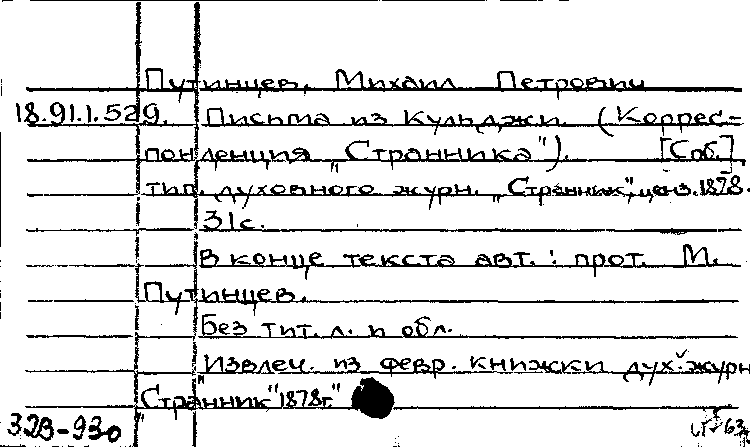 Путинцев, Михаил Петрович
18.91.1.529. Письма из Кульджи. (Коррес=
понденция „Странника"). [Спб.],
тип. духовного журн. „Странник", ценз. 1878.
31с.
В конце текста авт.: прот. М.
Путинцев.
Без тит. л. и обл.
"Извлеч. из февр. книжки дух. журн
"Странник" 1878г."
323-930